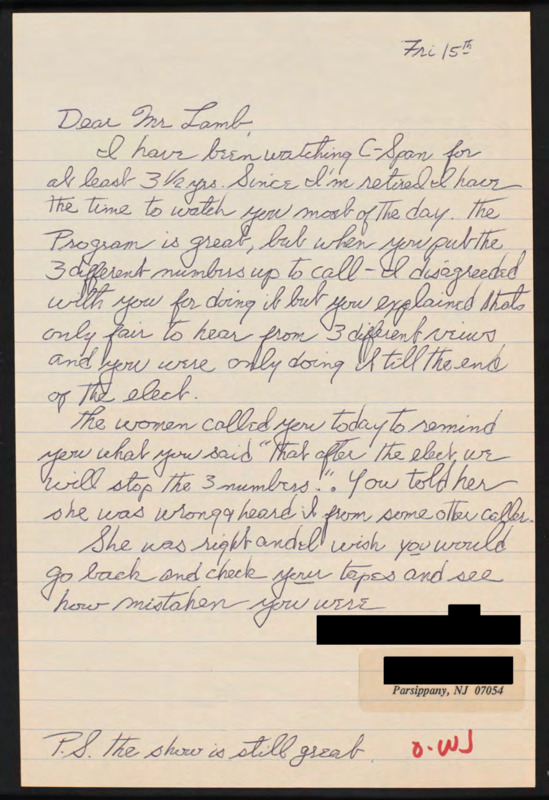 Fri 15th
Dear Mr Lamb,
I have been watching C-Span for
at least 3 1/2 yrs. Since I'm retired I have
the time to watch you most of the day. The
Program is great, but when you put the
3 different numbers up to call - I disagreeded
with you for doing it but you explained thats
only fair to hear from 3 different views
and you were only doing it till the end
of the elect.
The women called you today to remind
you what you said "that after the elect, we
will stop the 3 numbers.". You told her
she was wrong & heard it from some other caller.
She was right and I wish you would
go back and check your tapes and see
how mistaken you were
Parsippany, NJ 07054
P.S. The show is still great